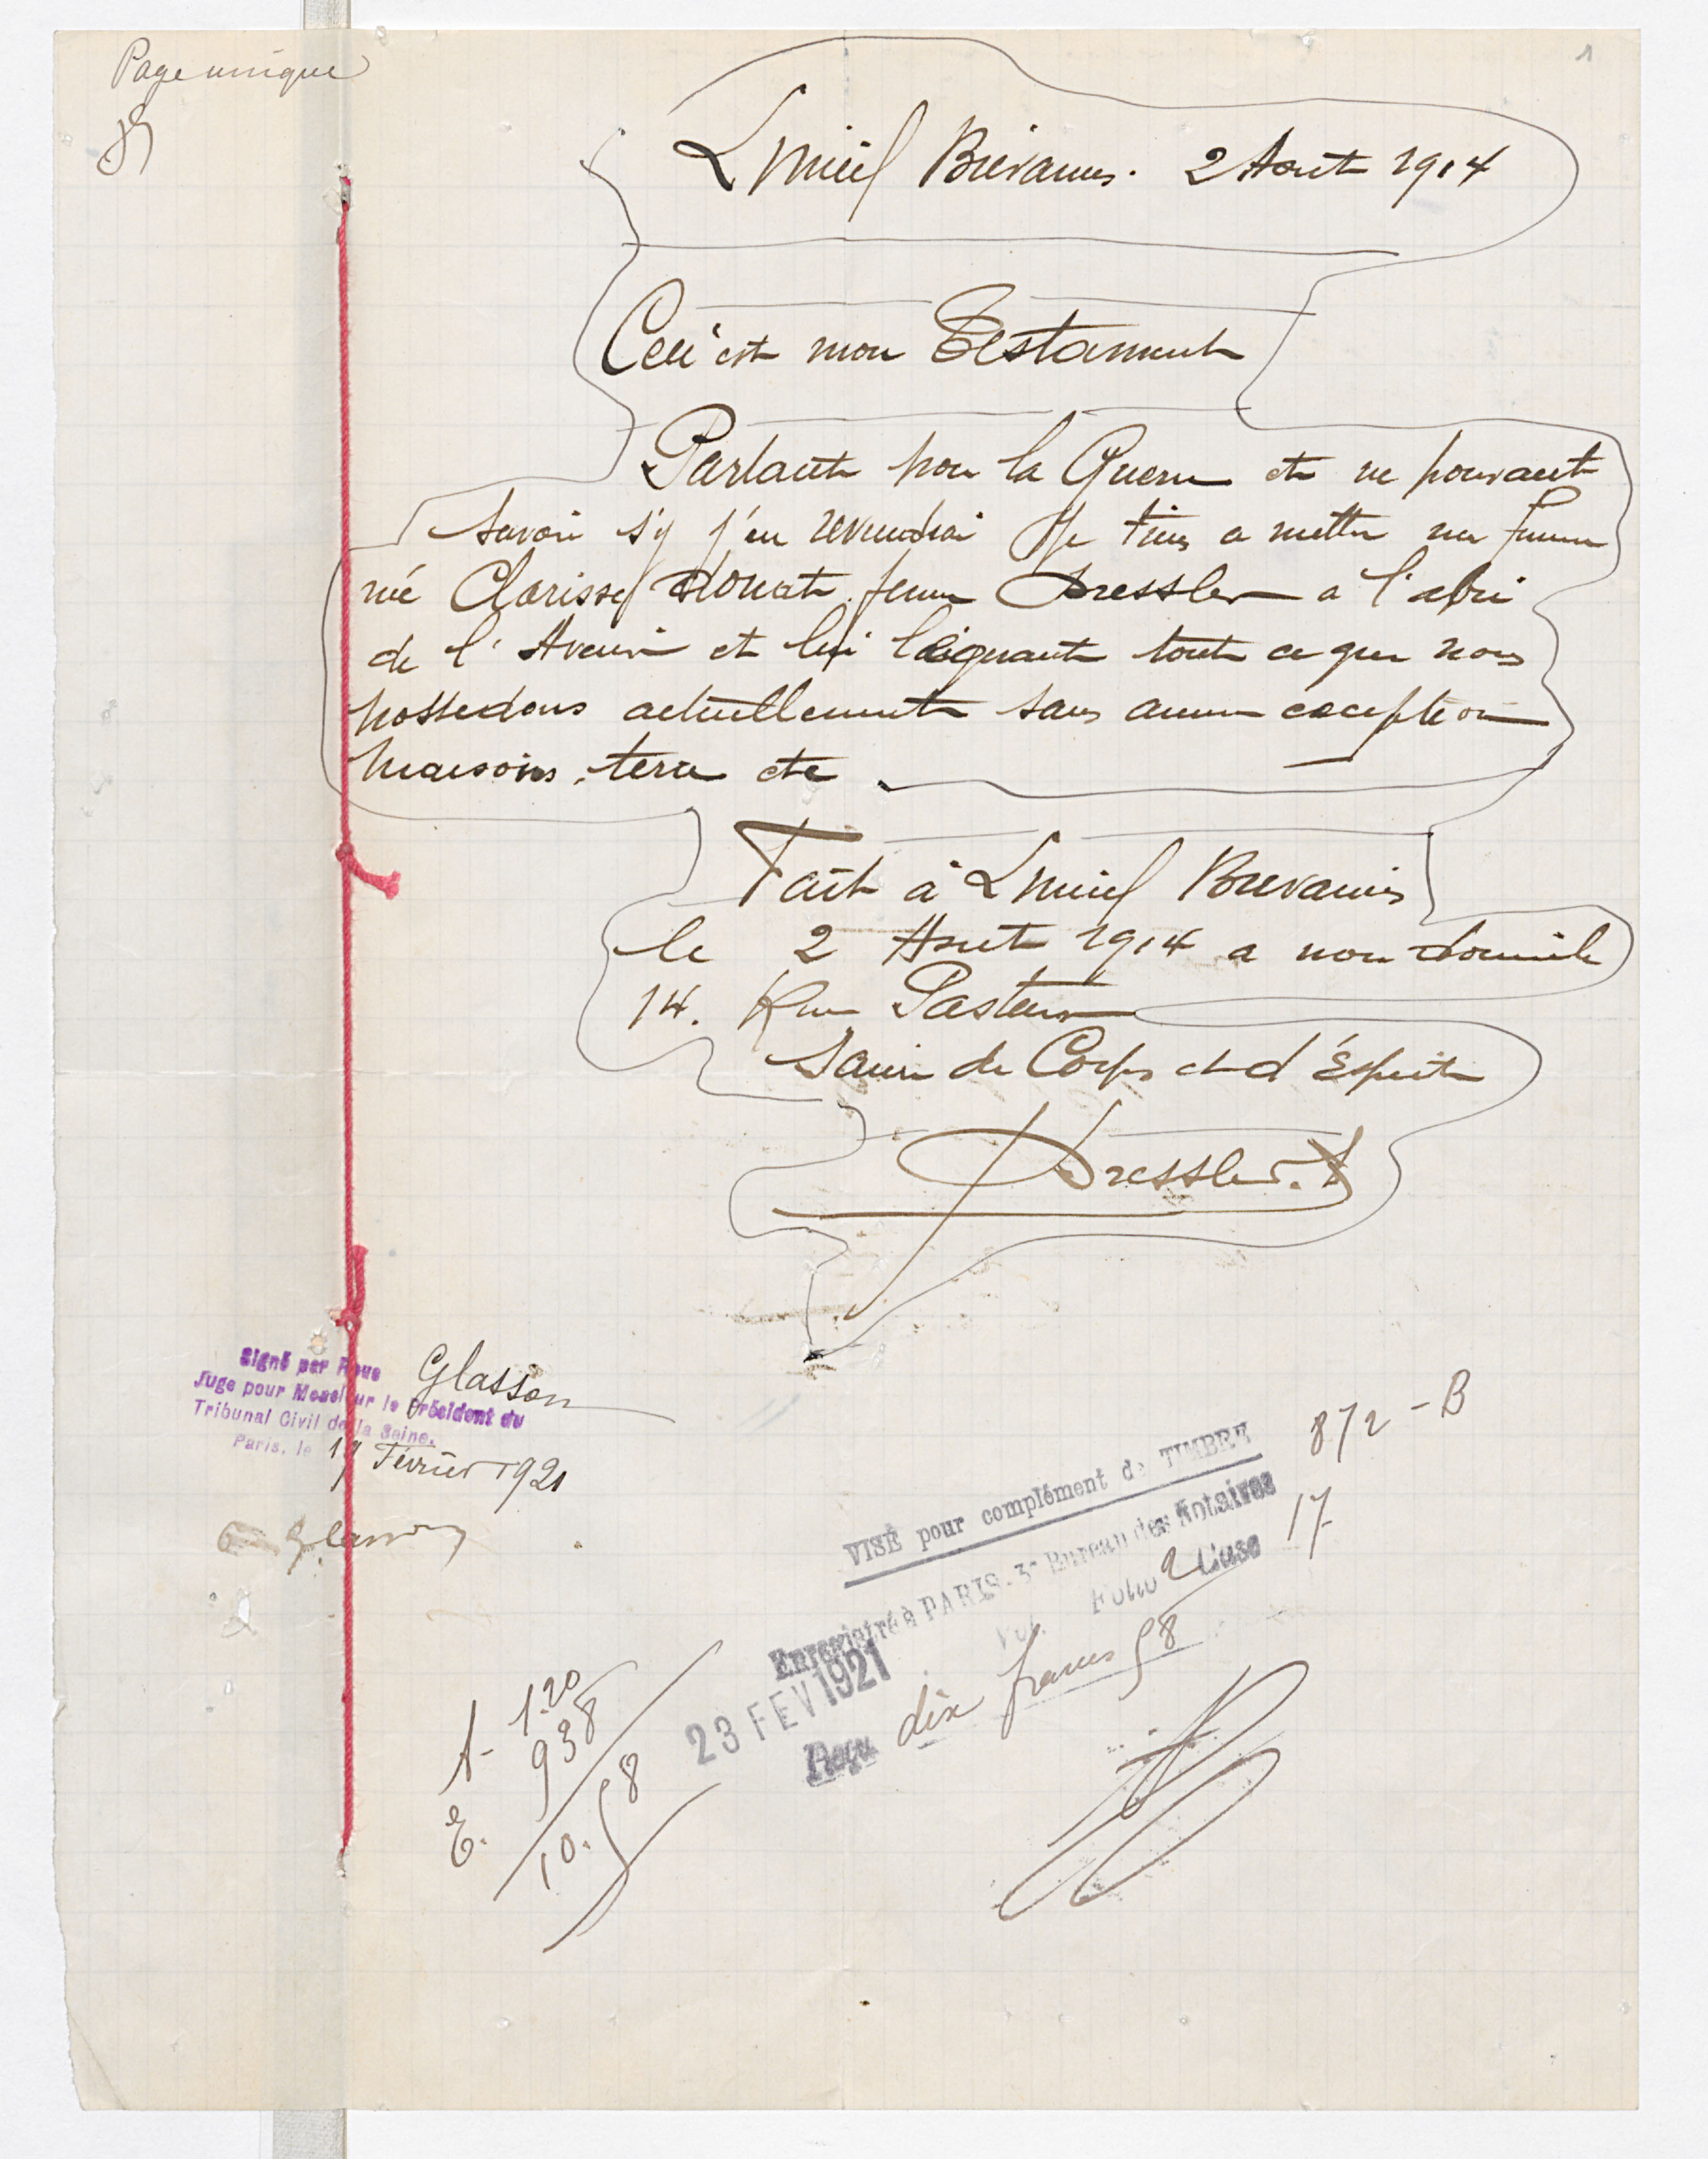 Page unique
1
Lmeil Brevannes. 2 Aout 1914
Ceci est mon Testament
Partant pour la Guerre et ne pouvant
savoir s'y j'en reviendrai Je tiens a mettre ma femme
né Clarisse Donat femme Dressler a l'abri
de l'Avenir et lui léguant tout ce que nous
possedons actuellement sans aucune exception
maisons, terre etc
Fait à Lmeil Brevannes
le 2 Aout 1914 a mon domicile
14. Rue Pasteur
Sain de Corps et d'Esprit
Dressler.
Signé par Nous
Glasson
Juge pour Monsieur le Président du
Tribunal Civil de la Seine.
Paris, le 17 Février 1921
Glasson
872 - B
VISÉ pour complément de TIMBRE
Enregistré à PARIS. 3e Bureau des Notaires
Vol. Folio 2 Case 17
23 FEV 1921
Reçu dix francs 58
t - 1.20
E. 938
10.58